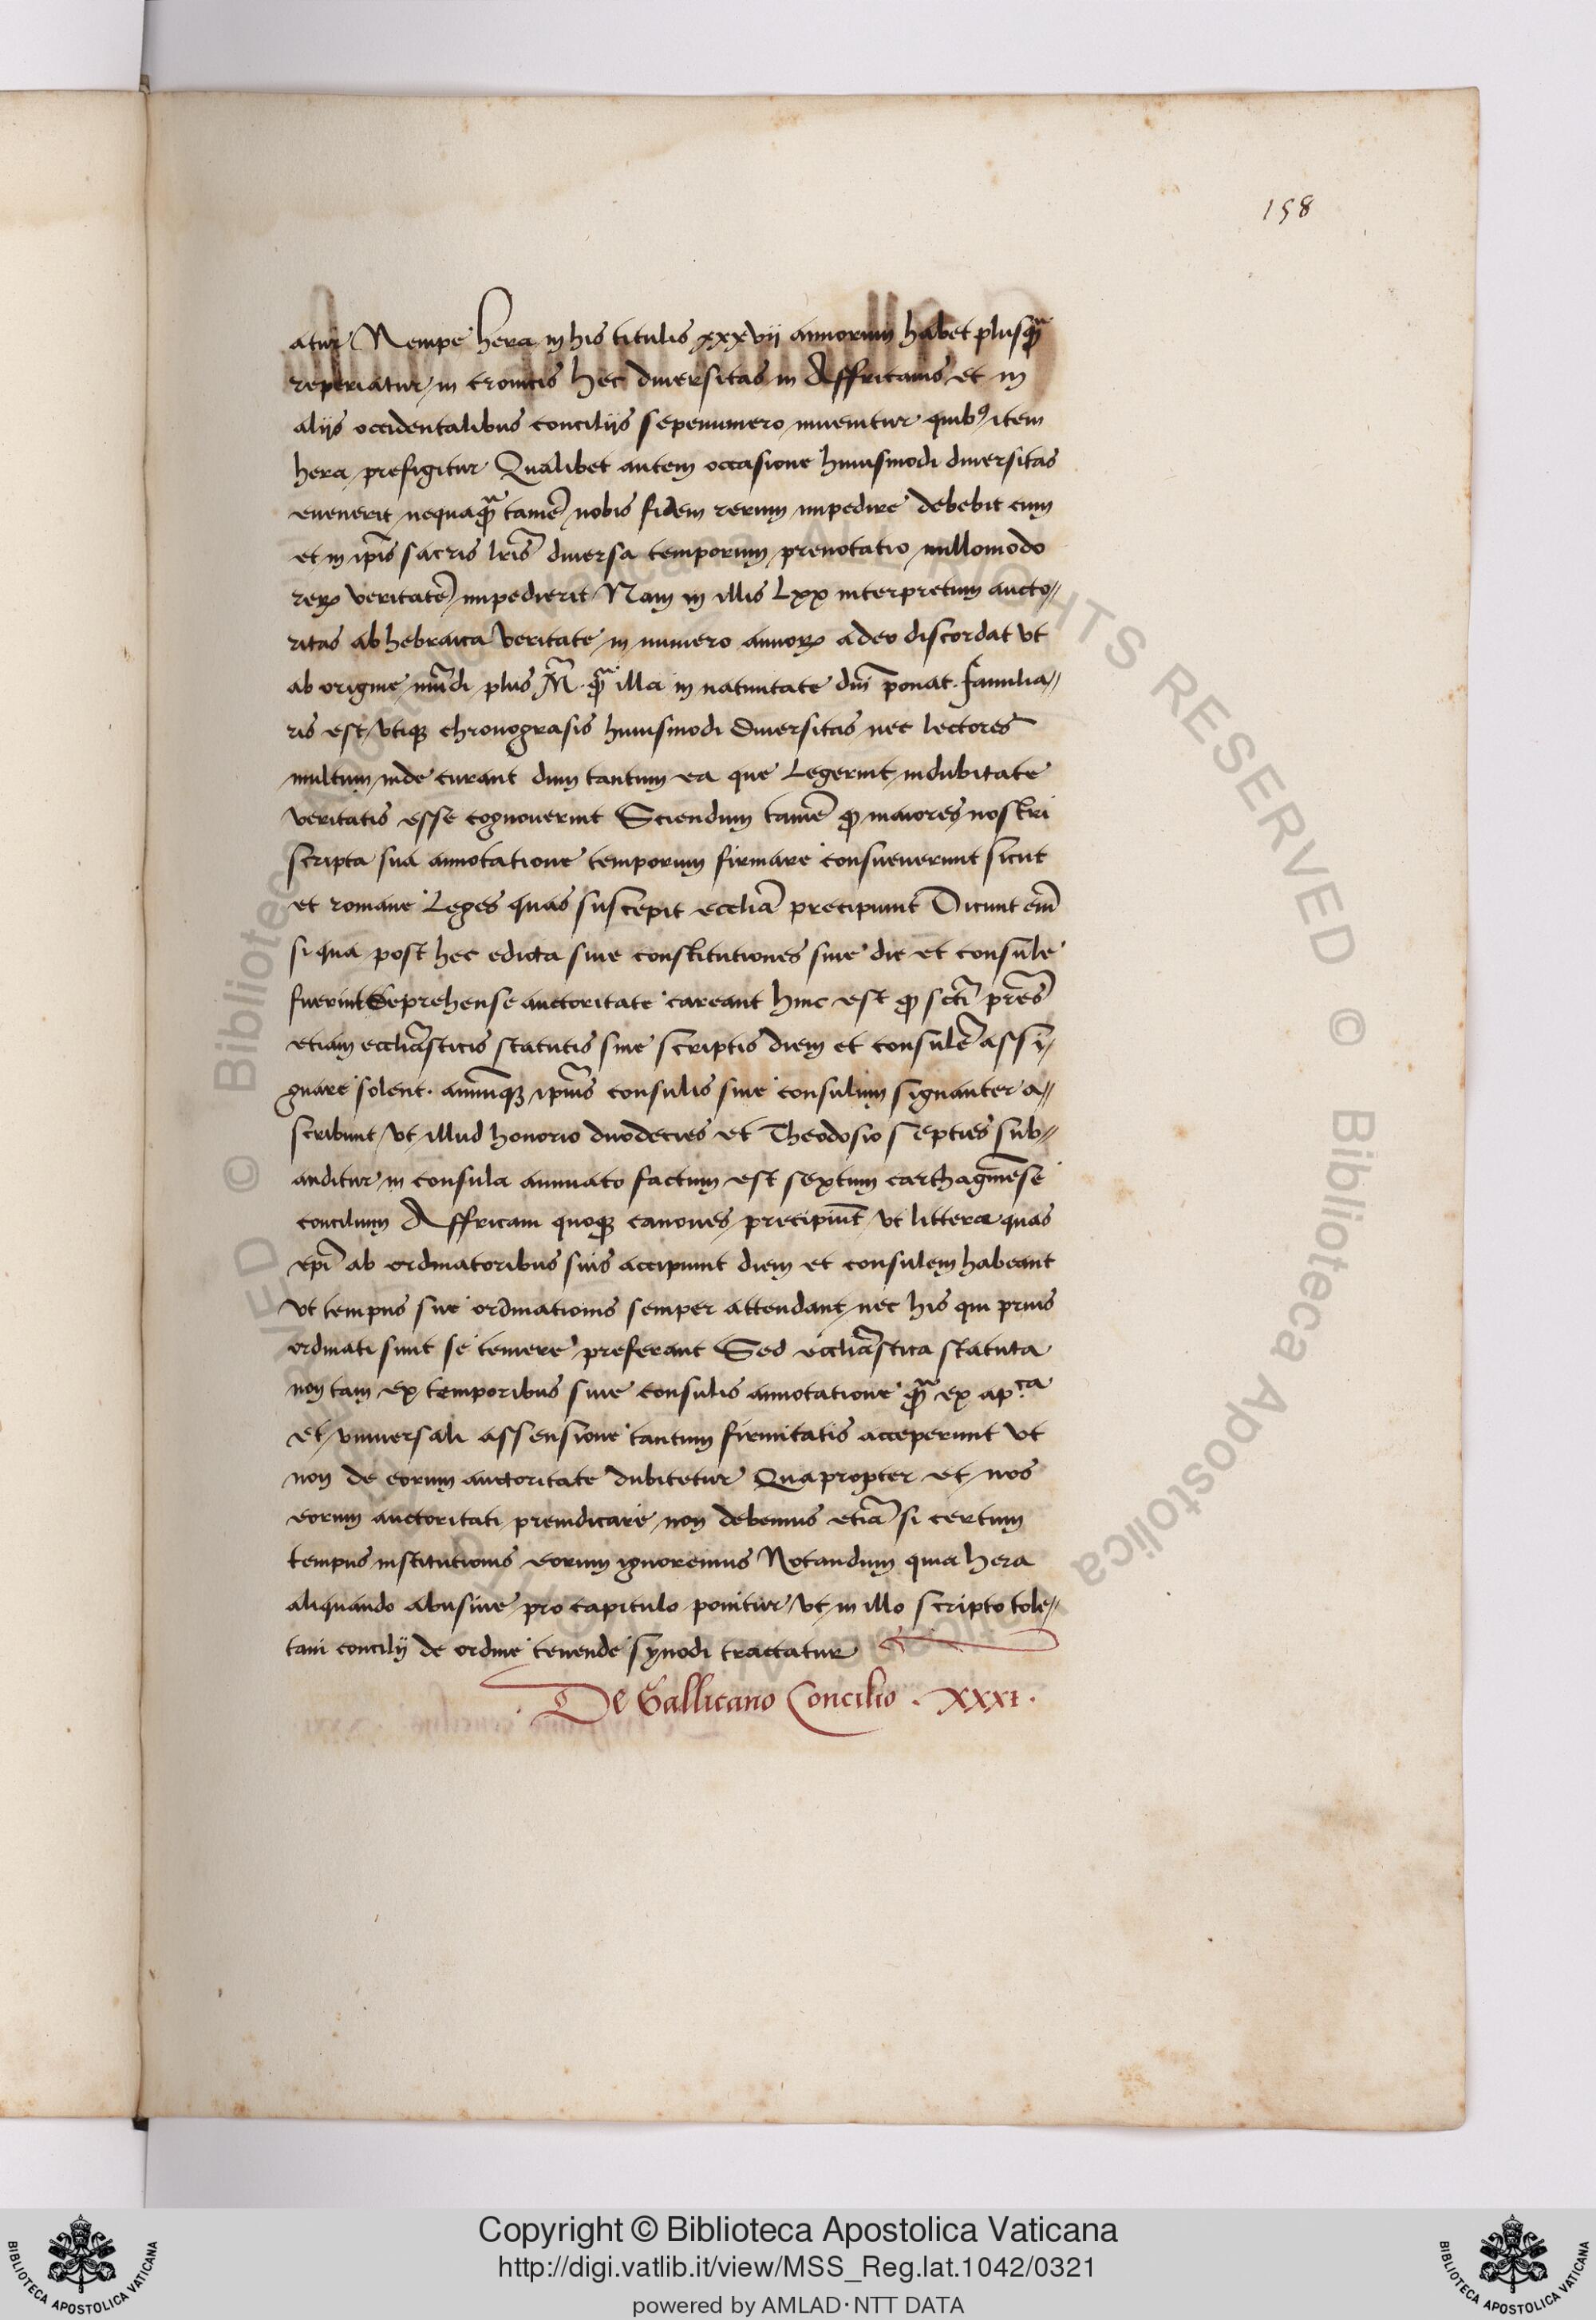 158
atur Nempe hera in his titulis xxxvii annorum habet plusq̃
reperiatur in cronicis hec diversitas in Affricanis et in
aliis occidentalibus conciliis sepenumero invenitur quib9 item
hera prefigitur Qualibet autem occasione huiusmodi diversitas
evenerit nequaq̃ tamē nobis fidem rerum impedire debebit cum
et in ip̄is sacris lr̄is diversa temporum prenotatio nullomodo
reꝝ veritatē impedierit Nam in illis Lxx interpretum aucto//
ritas ab hebraica veritate in numero annoꝝ adeo discordat vt
ab origine mūdi plus M̄. q̃ illa in nativitate dn̄i ponat. familia//
ris est vtiqꝫ chronograsis huiusmodi diversitas nec lectores
multum inde curant dum tantum ea que Legerint indubitate
veritatis esse cognoverint Sciendum tamē ꝙ maiores nostri
scripta sua annotatione temporum firmare consueverunt sicut
et romane Leges quas suscepit eccliā precipiunt Dicunt em̄
si qua post hec edicta sive constitutiones sine die et consule
fuerint deprehense auctoritate careant hinc est ꝙ sctī pr̄es
etiam eccliāsticis statutis sive scriptis diem et consulē assi/
gnare solent. annūqꝫ ipīus consulis sive consulum signanter a//
scribunt vt illud honorio duodecies et Theodosio septies sub//
auditur in consula annuato factum est sextum carthaginēse
concilium Affricani quoqꝫ canones precipiūt vt litterae quas
epī ab ordinatoribus suis accipiunt diem et consulem habeant
vt tempus sue ordinationis semper attendant nec his qui prius
ordinati sunt se temere preferant Sed eccliāstica statuta
non tam ex temporibus sive consulis annotatione q̃ ex ap.ca
et vniversali assensione tantum firmitatis acceperunt vt
non de eorum auctoritate dubitetur Quapropter et nos
eorum auctoritati preiudicare non debemus etiā si certum
tempus institutionis eorum ignoremus Notandum quia hera
aliquando abusive pro capitulo ponitur vt in illo scripto tole//
tani concilij de ordine tenende synodi tractatur
De Gallicano Concilio . xxxi .
Copyright © Biblioteca Apostolica Vaticana
http://digi.vatlib.it/view/MSS_Reg.lat.1042/0321
powered by AMLAD·NTT DATA
BIBLIOTECA APOSTOLICA VATICANA
BIBLIOTECA APOSTOLICA VATICANA